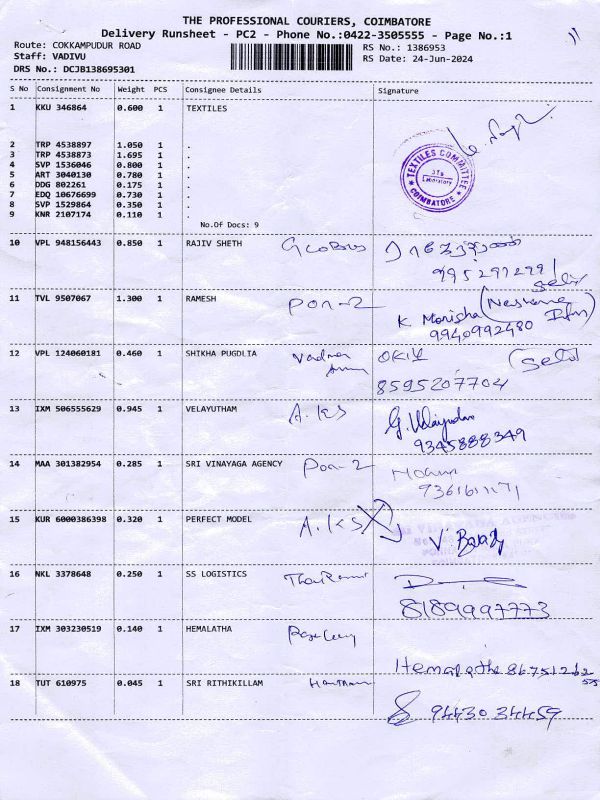 THE PROFESSIONAL COURIERS, COIMBATORE
Delivery Runsheet - PC2 - Phone No.:0422-3505555 - Page No.:1
Route: COKKAMPUDUR ROAD
RS No.: 1386953
Staff: VADIVU
RS Date: 24-Jun-2024
DRS No.: DCJB138695301
S No Consignment No Weight PCS Consignee Details Signature
1 KKU 346864 0.600 1 TEXTILES
2 TRP 4538897 1.050 1 .
3 TRP 4538873 1.695 1 .
4 SVP 1536046 0.800 1 .
5 ART 3040130 0.780 1 .
6 DDG 802261 0.175 1 .
7 EDQ 10676699 0.730 1 .
8 SVP 1529864 0.350 1 .
9 KNR 2107174 0.110 1 .
TEXTILES COMMITTEE
Laboratory
COIMBATORE
No.Of Docs: 9
10 VPL 948156443 0.850 1 RAJIV SHETH Globus
9952912291
self
11 TVL 9507067 1.300 1 RAMESH Pon-2
K Monisha
9940992480
12 VPL 124060181 0.460 1 SHIKHA PUGDLIA
(Self)
8595207704
13 IXM 506555629 0.945 1 VELAYUTHAM A.KS
G. Velayudam
9345888349
14 MAA 301382954 0.285 1 SRI VINAYAGA AGENCY Pon-2
15 KUR 6000386398 0.320 1 PERFECT MODEL A.KS
16 NKL 3378648 0.250 1 SS LOGISTICS
8189997773
17 IXM 303230519 0.140 1 HEMALATHA
Hemalatha
18 TUT 610975 0.045 1 SRI RITHIKILLAM
9443034459